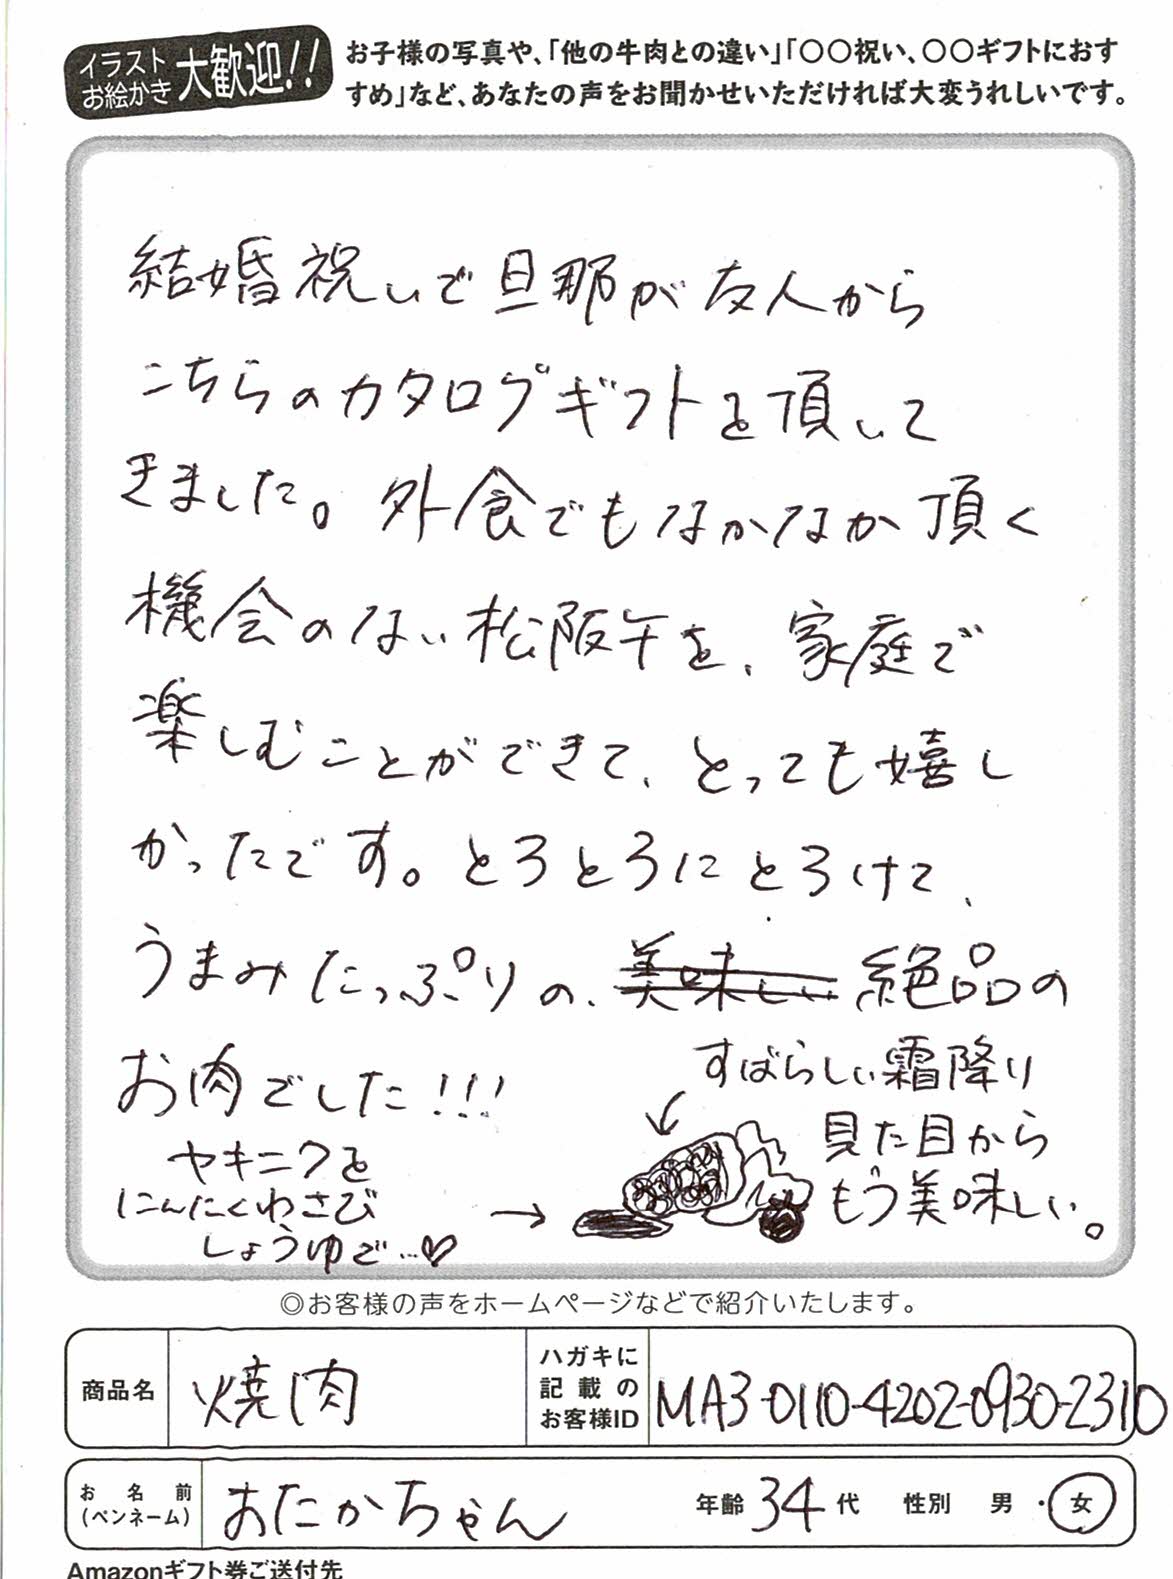 イラスト
お絵かき
大歓迎!!
お子様の写真や、「他の牛肉との違い」「〇〇祝い、〇〇ギフトにおす
すめ」など、あなたの声をお聞かせいただければ大変うれしいです。
結婚祝いで旦那が友人から
こちらのカタログギフトを頂いて
きました。外食でもなかなか頂く
機会のない松阪牛を、家庭で
楽しむことができて、とっても嬉し
かったです。とろとろにとろけて、
うまみたっぷりの、美味しい 絶品の
お肉でした!!!
すばらしい霜降り
見た目から
もう美味しい。
ヤキニクを
にんにくわさび
しょうゆで…♡
→
◎お客様の声をホームページなどで紹介いたします。
商品名 焼肉
ハガキに
記載の
お客様ID
MA3-0110-4202-0930-2310
お名前
(ペンネーム)
おたかちゃん
年齢 34 代 性別 男・女
Amazonギフト券ご送付先